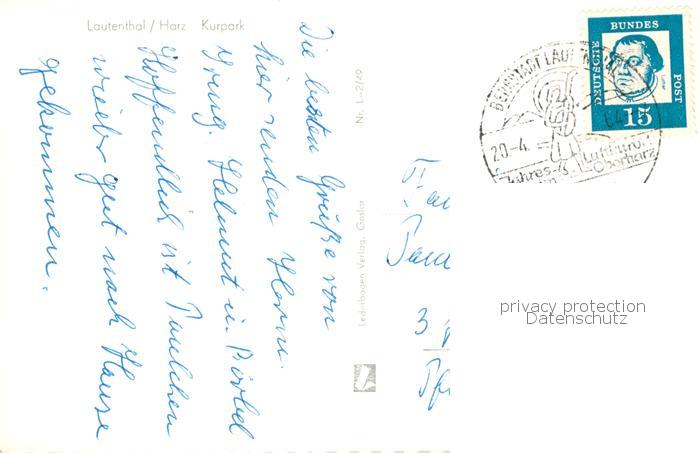 Lautenthal / Harz   Kurpark
Die besten Grüße von
hier senden Herm.
Irmg. Helmut u. Bärbel
Hoffendlich ist Paulchen
wieder gut nach Hause
gekommen.
Nr. L-2/9
Lederbogen Verlag, Goslar
BUNDES
POST
15
BERGSTADT LAUTENTHAL
20.-4.
Luftkurort
Oberharz
3
privacy protection
Datenschutz